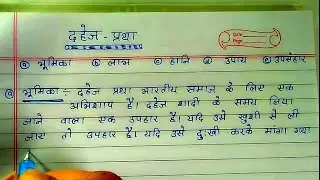 दहेज - प्रथा
① भूमिका ② लाभ ③ हानि ④ उपाय ⑤ उपसंहार
① भूमिका :- दहेज प्रथा भारतीय समाज के लिए एक
अभिशाप है। दहेज शादी के समय लिया
जाने वाला एक उपहार है। यदि उसे खुशी से ली
जाए तो उपहार है। यदि उसे दुःखी करके मांगा गया